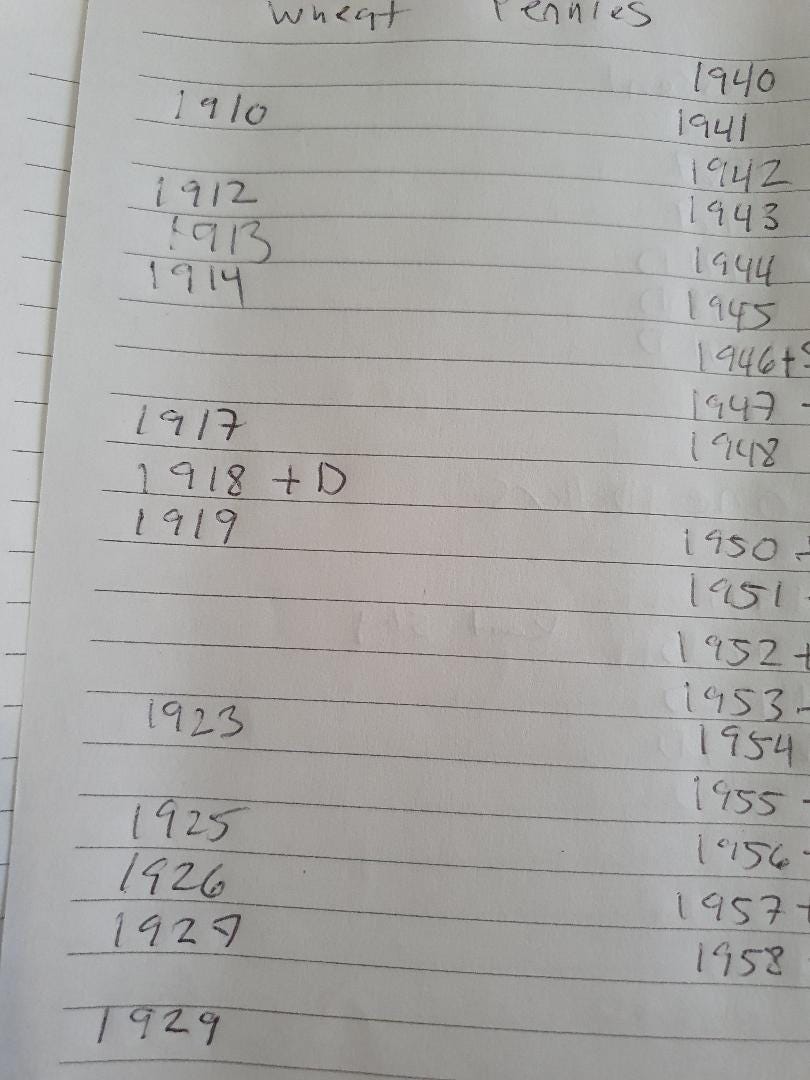 Wheat Pennies
1910
1912
1913
1914
1917
1918 + D
1919
1923
1925
1926
1927
1929
1940
1941
1942
1943
1944
1945
1946+S
1947 -
1948
1950 +
1951 -
1952 +
1953 -
1954
1955 -
1956 -
1957 +
1958